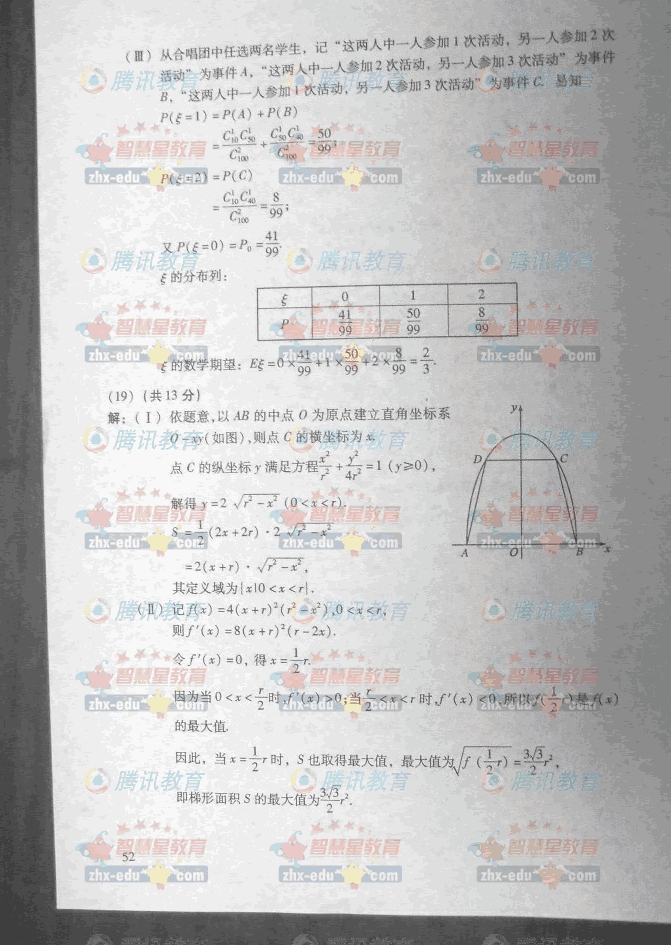 (Ⅲ) 从合唱团中任选两名学生，记“这两人中一人参加1次活动，另一人参加2次
活动”为事件A，“这两人中一人参加2次活动，另一人参加3次活动”为事件
B，“这两人中一人参加1次活动，另一人参加3次活动”为事件C. 易知
P(ξ=1)=P(A)+P(B)
=C¹₁₀C¹₅₀/C²₁₀₀+C¹₅₀C¹₄₀/C²₁₀₀=50/99;
P(ξ=2)=P(C)
=C¹₁₀C¹₄₀/C²₁₀₀=8/99;
又P(ξ=0)=P₀=41/99.
ξ的分布列:
ξ 0 1 2
P 41/99 50/99 8/99
ξ的数学期望: Eξ=0×41/99+1×50/99+2×8/99=2/3.
(19) (共13分)
解: (Ⅰ) 依题意,以AB的中点O为原点建立直角坐标系
O-xy(如图),则点C的横坐标为x.
点C的纵坐标y满足方程x²/r²+y²/4r²=1 (y≥0),
解得y=2√(r²-x²) (0<x<r).
S=1/2(2x+2r)·2√(r²-x²)
=2(x+r)·√(r²-x²),
其定义域为{x|0<x<r}.
y
D
C
A
O
B
x
(Ⅱ) 记f(x)=4(x+r)²(r²-x²),0<x<r,
则f′(x)=8(x+r)²(r-2x).
令f′(x)=0, 得x=1/2r.
因为当0<x<r/2时,f′(x)>0;当r/2<x<r时,f′(x)<0,所以f(1/2r)是f(x)
的最大值.
因此，当x=1/2r时，S也取得最大值，最大值为√(f(1/2r))=3√3/2r²,
即梯形面积S的最大值为3√3/2r².
52
腾讯教育
智慧星教育
zhx-edu.com